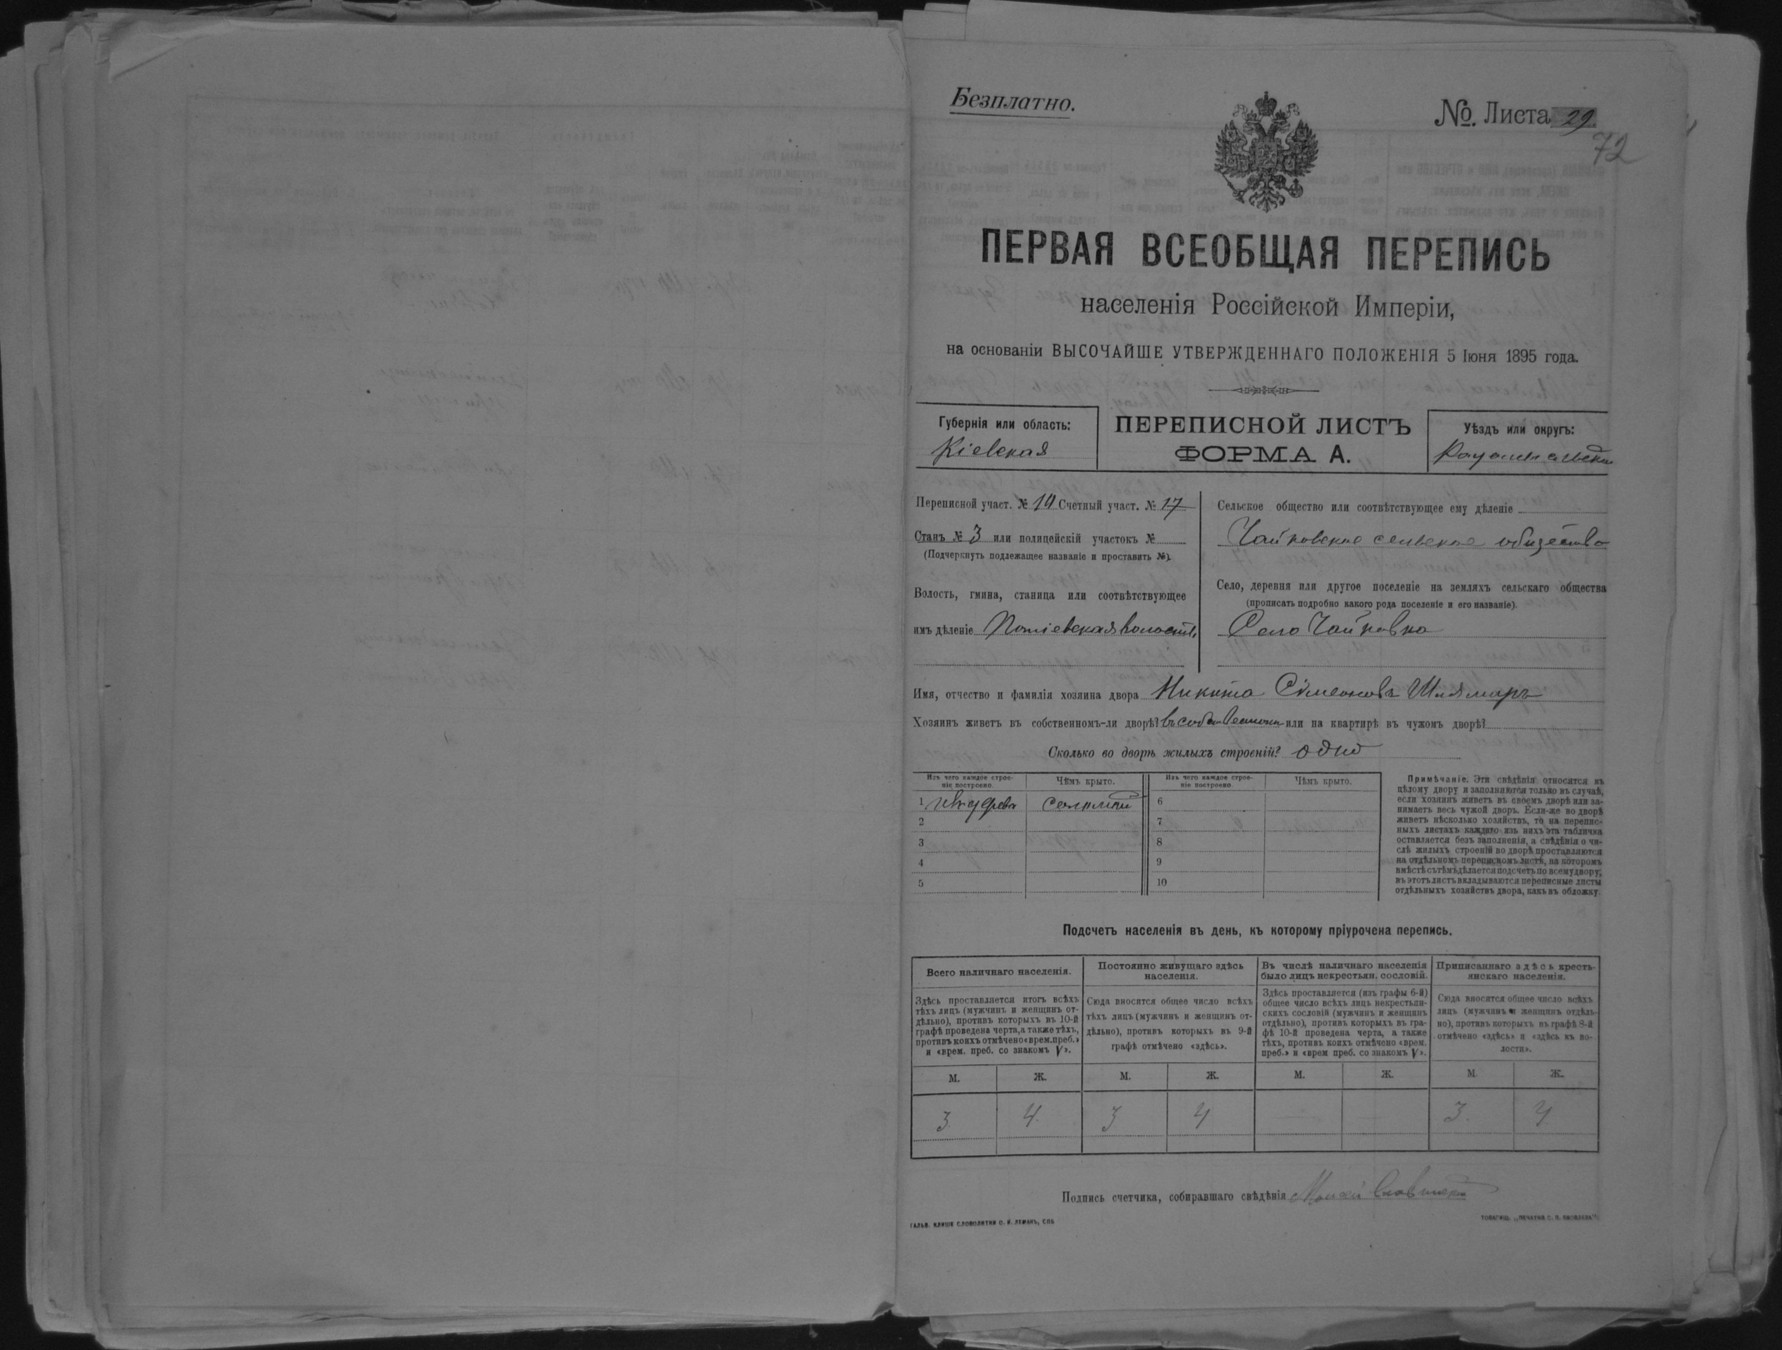 Безплатно.
№. Листа 29.
72
ПЕРВАЯ ВСЕОБЩАЯ ПЕРЕПИСЬ
населенія Россійской Имперіи,
на основаніи ВЫСОЧАЙШЕ УТВЕРЖДЕННАГО ПОЛОЖЕНІЯ 5 Іюня 1895 года.
Губернія или область:
Кіевская
ПЕРЕПИСНОЙ ЛИСТЪ
ФОРМА А.
Уѣздъ или округъ:
Переписной участ. № 14 Счетный участ. № 17
Станъ № 3 или полицейскій участокъ №
(Подчеркнуть подлежащее названіе и проставить №).
Волость, гмина, станица или соотвѣтствующее
имъ дѣленіе волость
Сельское общество или соотвѣтствующее ему дѣленіе
Чайковское сельское общество
Село, деревня или другое поселеніе на земляхъ сельскаго общества
(прописать подробно какого рода поселеніе и его названіе).
Село Чайковка
Имя, отчество и фамилія хозяина двора Никита Симеоновъ
Хозяинъ живетъ въ собственномъ-ли дворѣ? или на квартирѣ въ чужомъ дворѣ?
Сколько во дворѣ жилыхъ строеній? одно
Изъ чего каждое строе-
ніе построено.
Чѣмъ крыто.
Изъ чего каждое строе-
ніе построено.
Чѣмъ крыто.
1 изъ дерева соломой 6
2 7
3 8
4 9
5 10
Примѣчаніе. Эти свѣдѣнія относятся къ
цѣлому двору и заполняются только въ случаѣ,
если хозяинъ живетъ въ своемъ дворѣ или за-
нимаетъ весь чужой дворъ. Если-же во дворѣ
живетъ нѣсколько хозяйствъ, то на перепис-
ныхъ листахъ каждаго изъ нихъ эта табличка
оставляется безъ заполненія, а свѣдѣнія о чи-
слѣ жилыхъ строеній во дворѣ проставляются
на отдѣльномъ переписномъ листѣ, на которомъ
вмѣстѣ съ тѣмъ дѣлается подсчетъ по всему двору;
въ этотъ листъ вкладываются переписные листы
отдѣльныхъ хозяйствъ двора, какъ въ обложку.
Подсчетъ населенія въ день, къ которому пріурочена перепись.
Всего наличнаго населенія.
Здѣсь проставляется итогъ всѣхъ
тѣхъ лицъ (мужчинъ и женщинъ от-
дѣльно), противъ которыхъ въ 10-й
графѣ проведена черта, а также тѣхъ,
противъ коихъ отмѣчено «врем. преб.»
и «врем. преб. со знакомъ V».
Постоянно живущаго здѣсь
населенія.
Сюда вносится общее число всѣхъ
тѣхъ лицъ (мужчинъ и женщинъ от-
дѣльно), противъ которыхъ въ 9-й
графѣ отмѣчено «здѣсь».
Въ числѣ наличнаго населенія
было лицъ некрестьян. сословій.
Здѣсь проставляется (изъ графы 6-й)
общее число всѣхъ лицъ некрестьян-
скихъ сословій (мужчинъ и женщинъ
отдѣльно), противъ которыхъ въ гра-
фѣ 10-й проведена черта, а также
тѣхъ, противъ коихъ отмѣчено «врем.
преб.» и «врем преб. со знакомъ V».
Приписаннаго здѣсь кресть-
янскаго населенія.
Сюда вносится общее число всѣхъ
лицъ (мужчинъ и женщинъ отдѣль-
но), противъ которыхъ въ графѣ 8-й
отмѣчено «здѣсь» и «здѣсь къ во-
лости».
М. Ж. М. Ж. М. Ж. М. Ж.
3 4 3 4 — — 3. 4
Подпись счетчика, собиравшаго свѣдѣнія